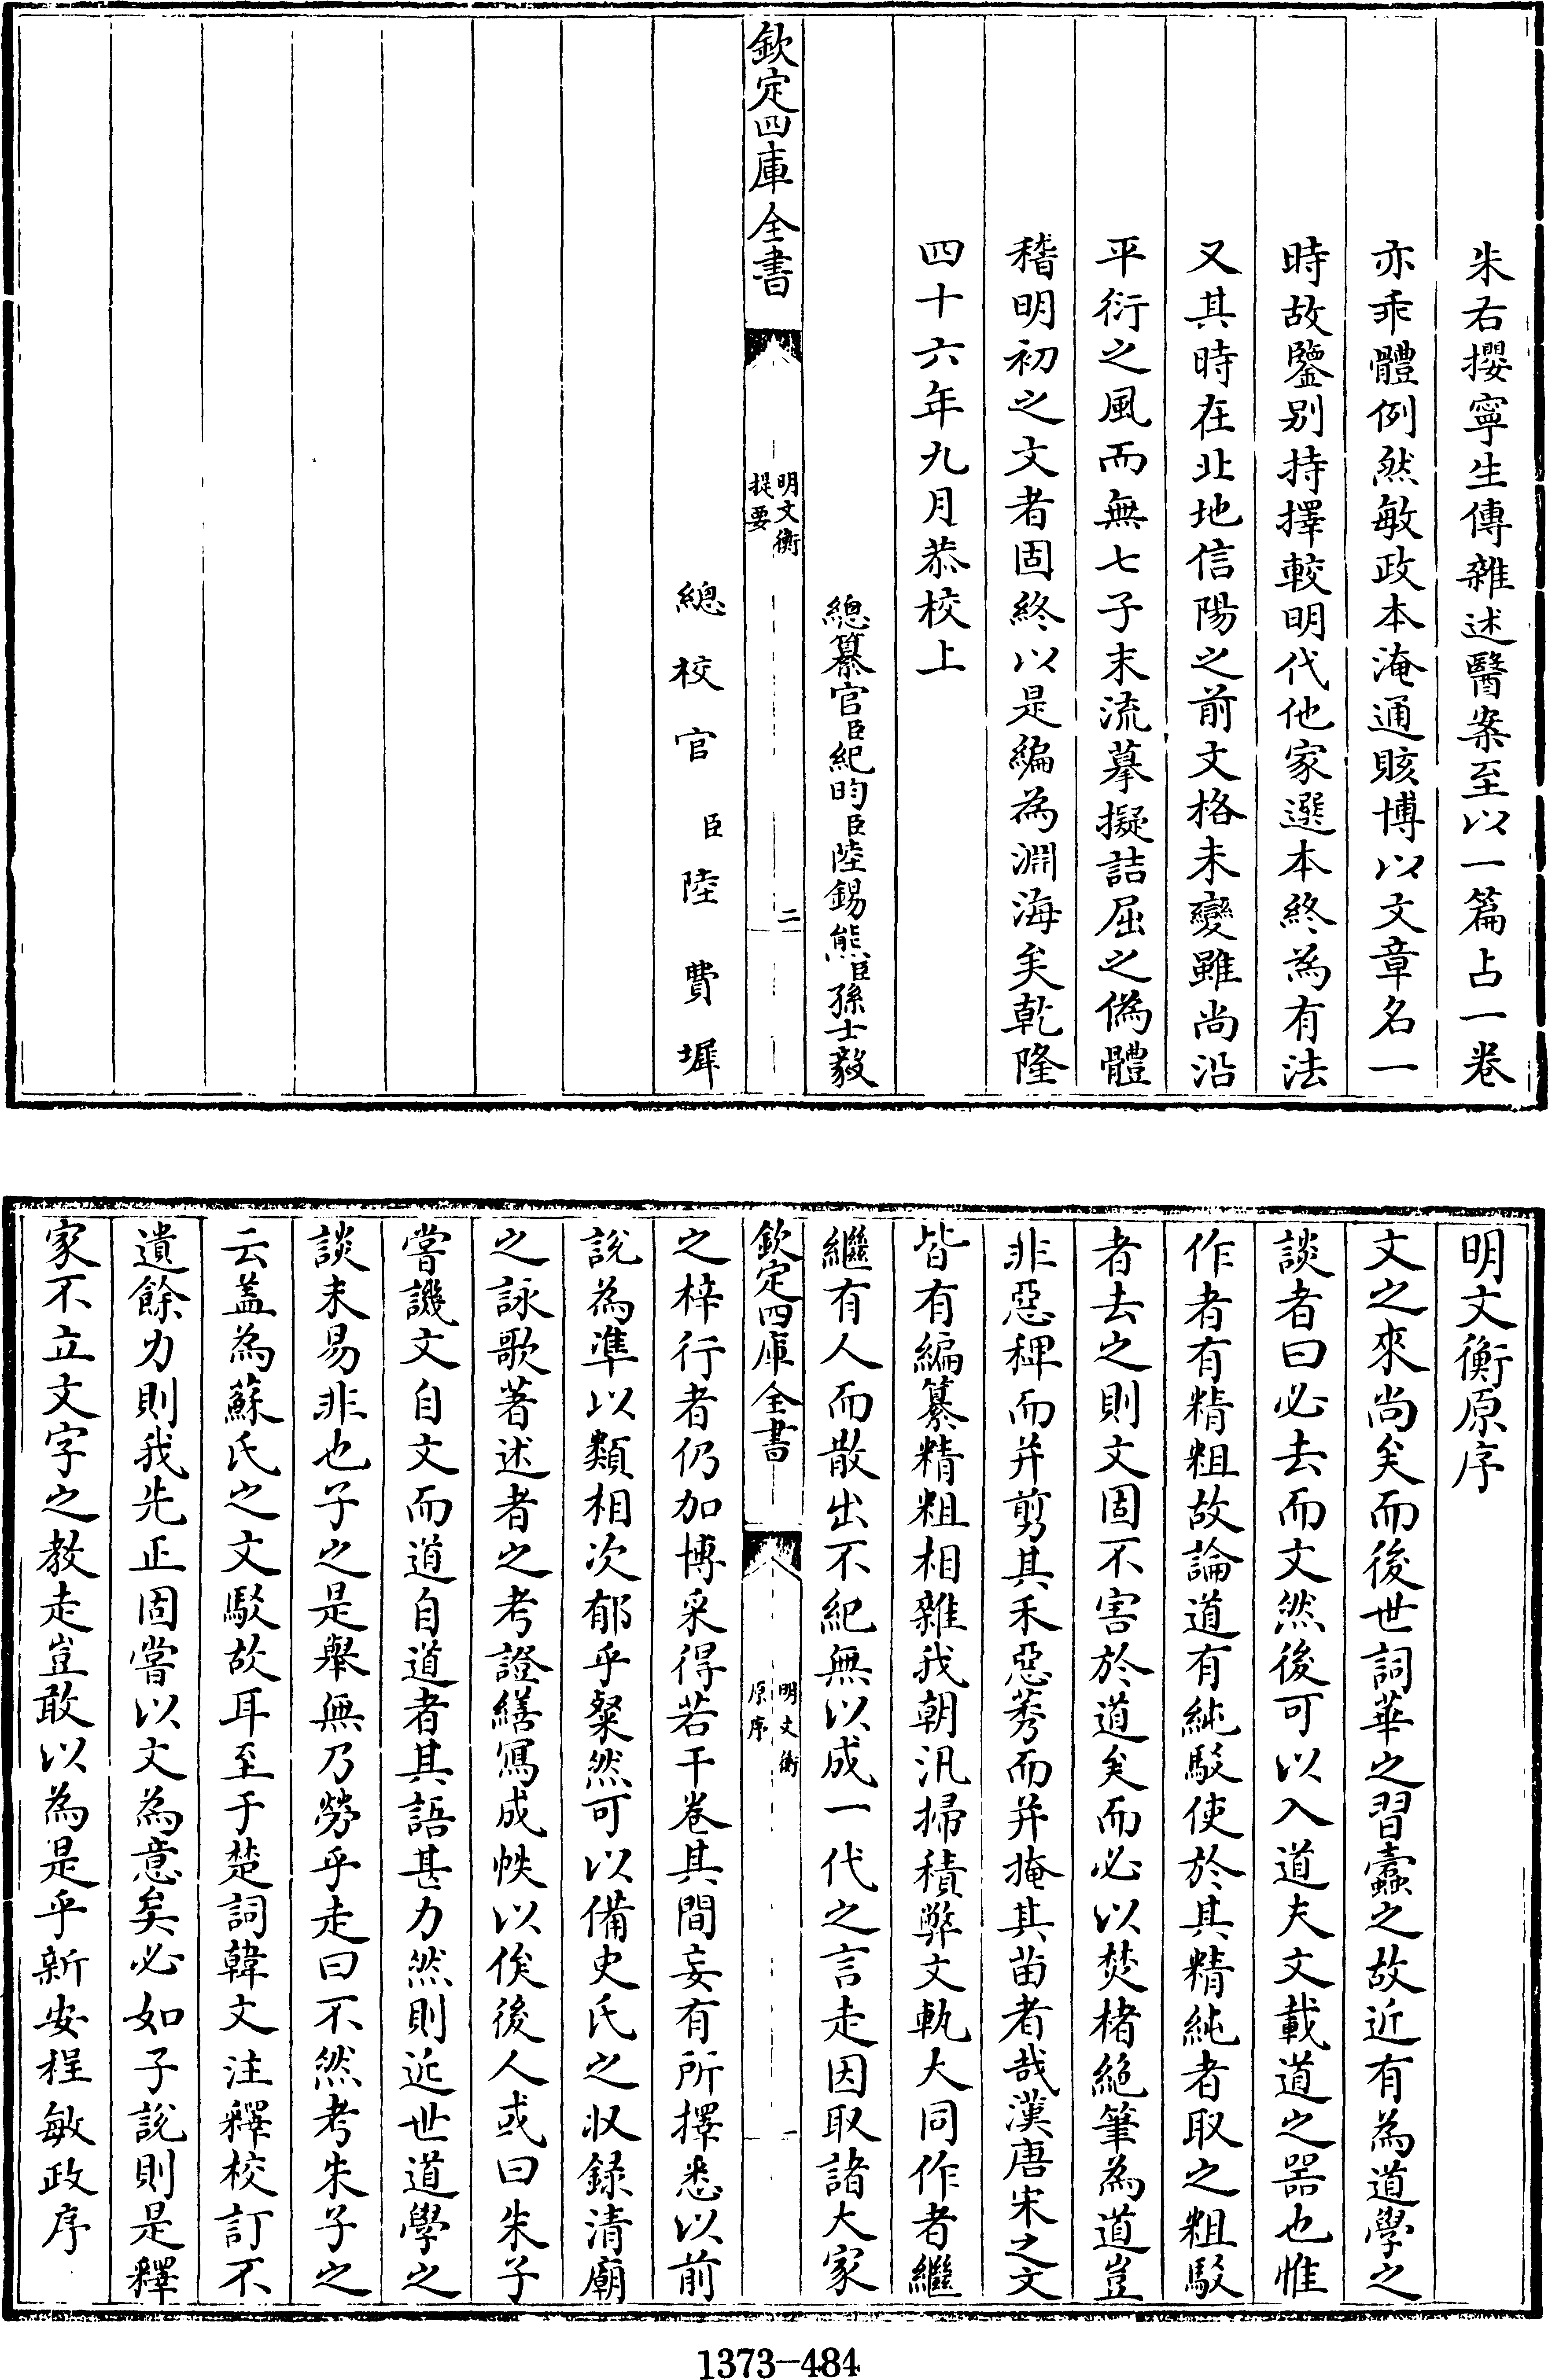 朱右攖寧生傳雜述醫案至以一篇占一卷
亦乖體例然敏政本淹通賅博以文章名一
時故鑒别持擇較明代他家選本終為有法
又其時在北地信陽之前文格未變雖尚沿
平衍之風而無七子末流摹擬詰屈之偽體
稽明初之文者固終以是編為淵海矣乾隆
四十六年九月恭校上
總纂官臣紀昀臣陸錫熊臣孫士毅
欽定四庫全書
明文衡
提要
二
總校官臣陸費墀
明文衡原序
文之來尚矣而後世詞華之習蠹之故近有為道學之
談者曰必去而文然後可以入道夫文載道之器也惟
作者有精粗故論道有純駁使於其精純者取之粗駁
者去之則文固不害於道矣而必以焚楮絶筆為道豈
非惡稗而并剪其禾惡莠而并掩其苗者哉漢唐宋之文
皆有編纂精粗相雜我朝汛掃積弊文軌大同作者繼
繼有人而散出不紀無以成一代之言走因取諸大家
欽定四庫全書
明文衡
原序
一
之梓行者仍加博采得若干卷其間妄有所擇悉以前
說為準以類相次郁乎粲然可以備史氏之収録清廟
之詠歌著述者之考證繕寫成帙以俟後人或曰朱子
嘗譏文自文而道自道者其語甚力然則近世道學之
談未易非也子之是舉無乃勞乎走曰不然考朱子之
云盖為蘇氏之文駁故耳至于楚詞韓文注釋校訂不
遺餘力則我先正固嘗以文為意矣必如子說則是釋
家不立文字之教走豈敢以為是乎新安程敏政序
1373-484